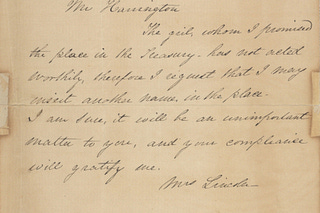 Mr Harrington
The girl, whom I promised
the place in the Treasury - has not acted
worthily, therefore I request that I may
insert another name, in the place.
I am sure, it will be an unimportant
matter to you, and your compliance
will gratify me.
Mrs Lincoln